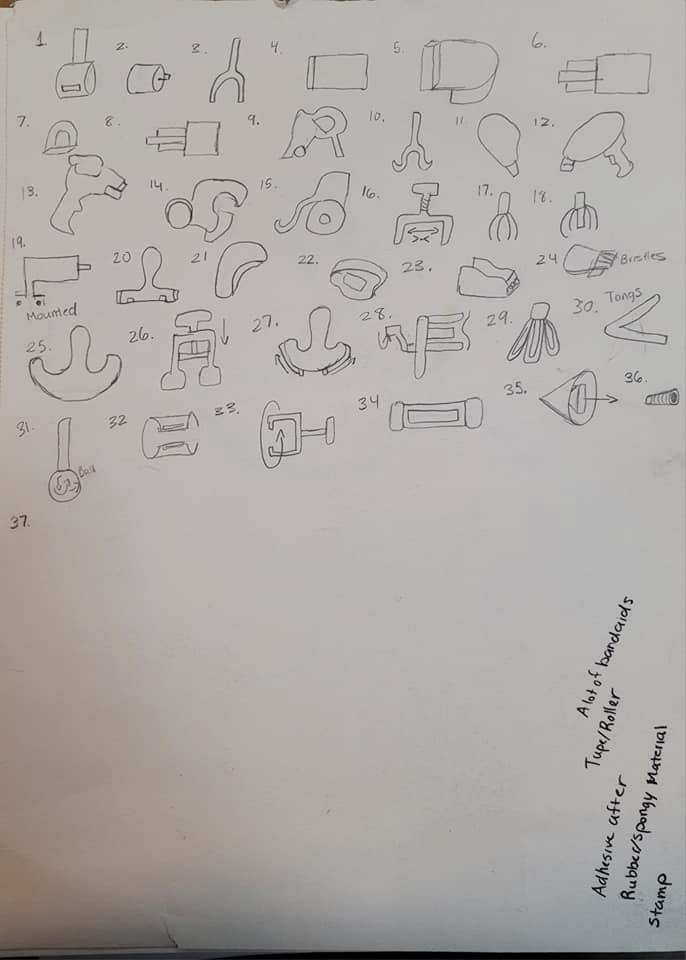 1. 2. 3. 4. 5. 6.
7. 8. 9. 10. 11 12.
13. 14. 15. 16. 17. 18.
19. 20 21 22. 23. 24 Bristles
Mounted
25. 26. 27. 28. 29. 30. Tongs
31. 32 33. 34 35. 36.
Ball
37.
A lot of bandaids
Tape/Roller
Adhesive after
Rubber/spongy Material
Stamp